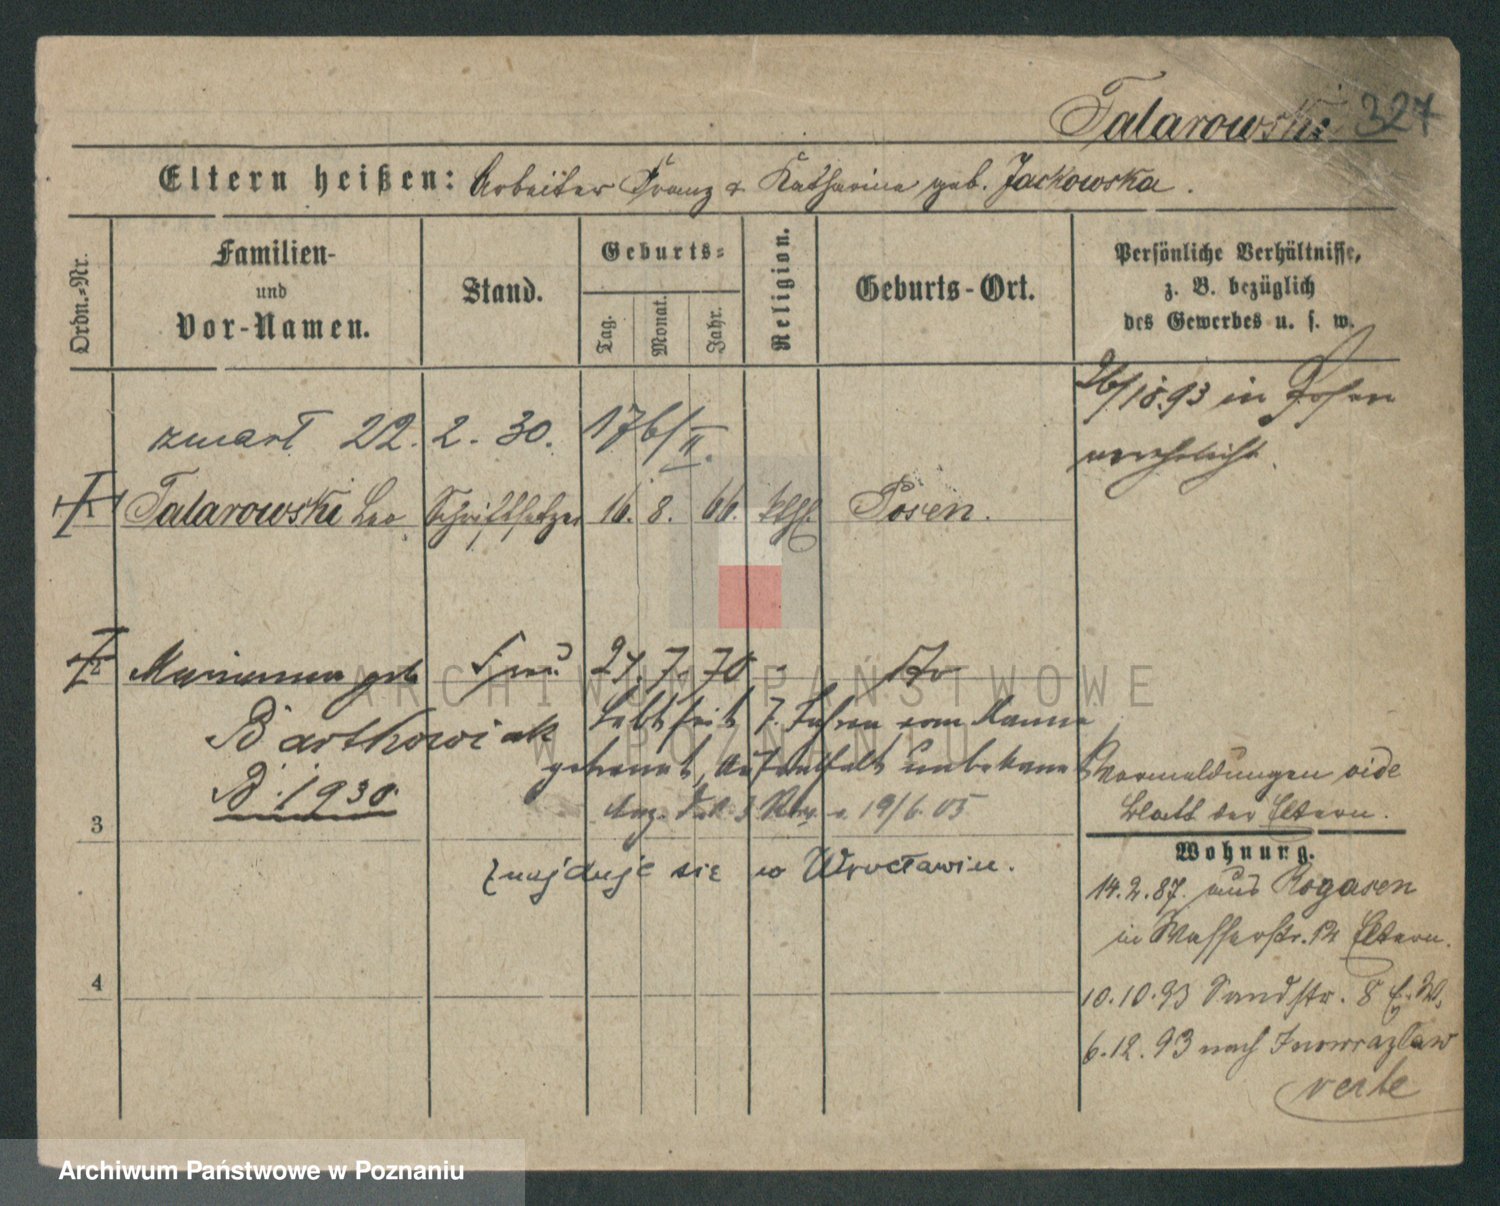 Talarowski 327
Eltern heißen: Arbeiter Franz & Katharina geb. Jackowska.
Ordn.-Nr.
Familien-
und
Vor-Namen.
Stand.
Geburts-
Tag.
Monat.
Jahr.
Religion.
Geburts-Ort.
Persönliche Verhältnisse,
z. B. bezüglich
des Gewerbes u. s. w.
in Posen
verehelicht.
zmarł 22. 2. 30. 176/II.
1 Talarowski Leo Schriftsetzer 16. 8. 66. kth. Posen.
2 Marianna geb. Frau 7. 70
Bartkowiak
lebt seit 7 Jahren vom Manne
getrennt, Aufenthalt unbekannt
B. 1930
19/6.05
Vormeldungen vide
Blatt der Eltern.
3
Wohnung.
znajduje się w Wrocławiu.
14.2.87. aus Rogasen
in Wasserstr. 12 Eltern.
4
10.10.93 Sandstr. 8
6.12.93 nach Inowrazlaw
verte
ARCHIWUM PAŃSTWOWE
W POZNANIU
Archiwum Państwowe w Poznaniu